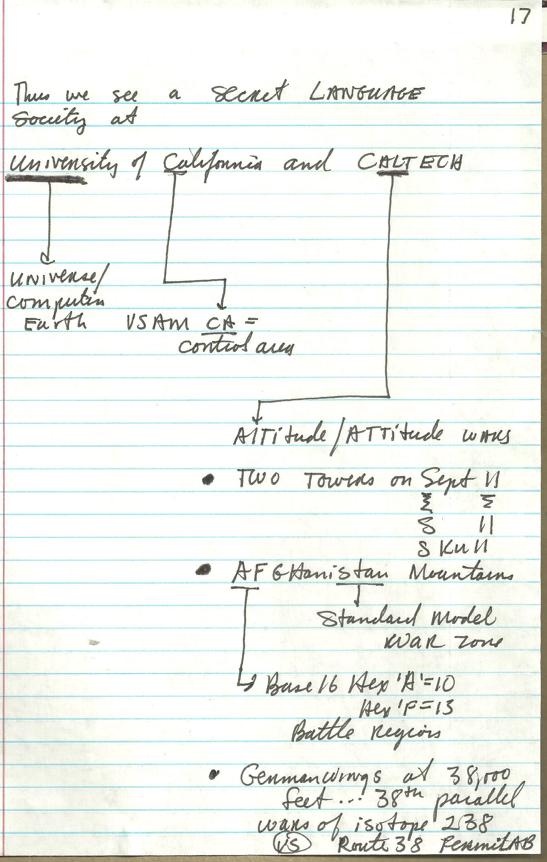 17
Thus we see a secret LANGUAGE
Society at
University of California and CALTECH
UNIVERSE/
Computer
Earth
VSAM CA =
control area
AlTitude/ATTitude wars
• TWO TOWERS on Sept 11
Ʃ Ʃ
S 11
SKull
• AFGHanistan Mountains
Standard Model
WAR ZONE
Base 16 Hex 'A'=10
Hex 'F'=15
Battle Regions
• Germanwings at 38,000
feet... 38th parallel
wars of isotope 238
VS Route 38 Permit AB